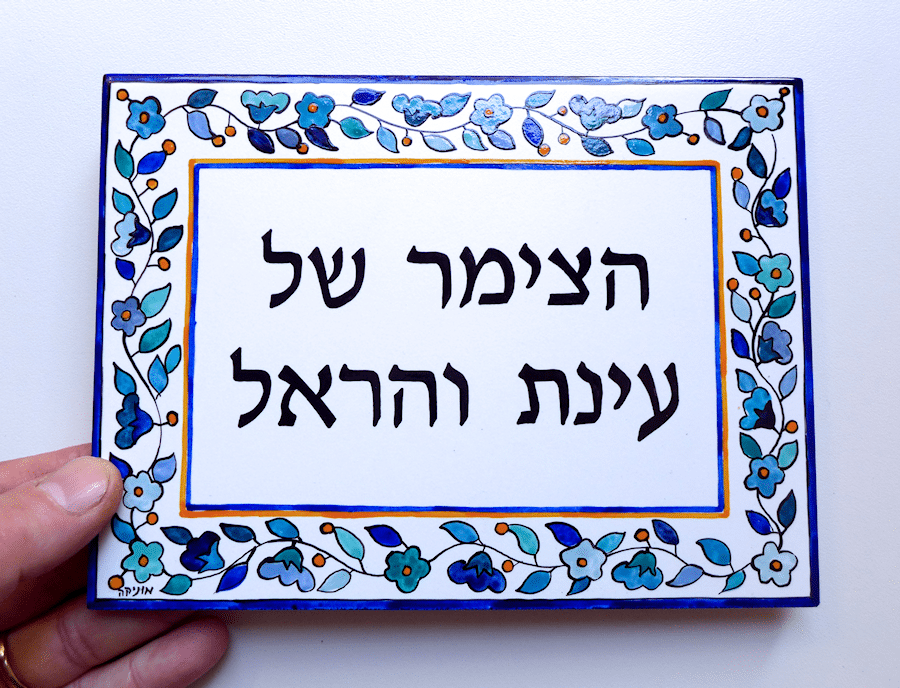 הצימר של
עינת והראל
מוניקה